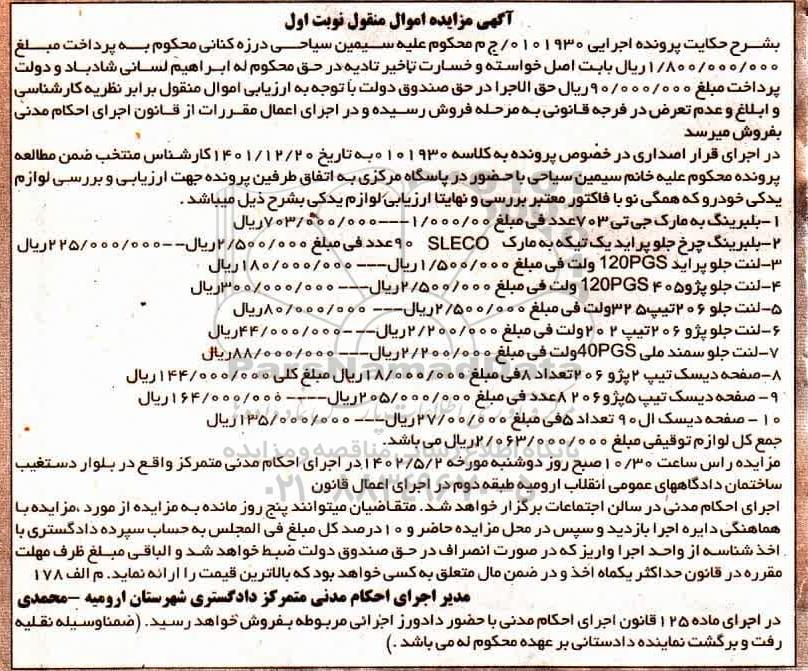 آگهی مزایده اموال منقول نوبت اول
بشرح حکایت پرونده اجرایی ۰۱۰۱۹۳۰/ج م محکوم علیه سیمین سیاحی درزه کنانی محکوم به پرداخت مبلغ
۱/۸۰۰/۰۰۰/۰۰۰ریال بابت اصل خواسته و خسارت تاخیر تادیه در حق محکوم له ابراهیم لسانی شادباد و دولت
پرداخت مبلغ ۹۰/۰۰۰/۰۰۰ریال حق الاجرا در حق صندوق دولت با توجه به ارزیابی اموال منقول برابر نظریه کارشناسی
و ابلاغ و عدم تعرض در فرجه قانونی به مرحله فروش رسیده و در اجرای اعمال مقررات از قانون اجرای احکام مدنی
بفروش میرسد
در اجرای قرار اصداری در خصوص پرونده به کلاسه ۰۱۰۱۹۳۰به تاریخ ۱۴۰۱/۱۲/۲۰کارشناس منتخب ضمن مطالعه
پرونده محکوم علیه خانم سیمین سیاحی با حضور در پاسگاه مرکزی به اتفاق طرفین پرونده جهت ارزیابی و بررسی لوازم
یدکی خودرو که همگی نو با فاکتور معتبر بررسی و نهایتا ارزیابی لوازم یدکی بشرح ذیل میباشد .
۱-بلبرینگ به مارک جی تی ۷۰۳عدد فی مبلغ ۱/۰۰۰/۰۰---۷۰۳/۰۰۰/۰۰۰ریال
۲-بلبرینگ چرخ جلو پراید یک تیکه به مارک SLECO ۹۰عدد فی مبلغ ۲/۵۰۰/۰۰۰ریال--۲۲۵/۰۰۰/۰۰۰ریال
۳-لنت جلو پراید 120PGS ولت فی مبلغ ۱/۵۰۰/۰۰۰ریال---۱۸۰/۰۰۰/۰۰۰ریال
۴-لنت جلو پژو۴۰۵ 120PGS ولت فی مبلغ ۲/۵۰۰/۰۰۰ریال---۳۰۰/۰۰۰/۰۰۰ریال
۵-لنت جلو ۲۰۶تیپ۵ ۳۲ولت فی مبلغ ۲/۵۰۰/۰۰۰ریال---۸۰/۰۰۰/۰۰۰ریال
۶-لنت جلو پژو ۲۰۶تیپ ۲ ۲۰ولت فی مبلغ ۲/۲۰۰/۰۰۰ریال---۴۴/۰۰۰/۰۰۰ریال
۷-لنت جلو سمند ملی 40PGSولت فی مبلغ ۲/۲۰۰/۰۰۰ریال---۸۸/۰۰۰/۰۰۰ریال
۸-صفحه دیسک تیپ ۲پژو ۲۰۶تعداد ۸فی مبلغ ۱۸/۰۰۰/۰۰۰ریال مبلغ کلی ۱۴۴/۰۰۰/۰۰۰ریال
۹- صفحه دیسک تیپ ۵پژو۲۰۶ ۸عدد فی مبلغ ۲۰۵/۰۰۰/۰۰۰ریال----۱۶۴/۰۰۰/۰۰۰ریال
۱۰- صفحه دیسک ال۹۰ تعداد ۵فی مبلغ ۲۷/۰۰/۰۰۰ریال---۱۳۵/۰۰۰/۰۰۰ریال
جمع کل لوازم توقیفی مبلغ ۲/۰۶۳/۰۰۰/۰۰۰ریال می باشد.
مزایده راس ساعت ۱۰/۳۰صبح روز دوشنبه مورخه ۱۴۰۲/۵/۲در اجرای احکام مدنی متمرکز واقع در بلوار دستغیب
ساختمان دادگاههای عمومی انقلاب ارومیه طبقه دوم در اجرای اعمال قانون
اجرای احکام مدنی در سالن اجتماعات برگزار خواهد شد. متقاضیان میتوانند پنج روز مانده به مزایده از مورد ،مزایده با
هماهنگی دایره اجرا بازدید و سپس در محل مزایده حاضر و ۱۰درصد کل مبلغ فی المجلس به حساب سپرده دادگستری با
اخذ شناسه از واحد اجرا واریز که در صورت انصراف در حق صندوق دولت ضبط خواهد شد و الباقی مبلغ ظرف مهلت
مقرره در قانون حداکثر یکماه اخذ و در ضمن مال متعلق به کسی خواهد بود که بالاترین قیمت را ارائه نماید. م الف ۱۷۸
مدیر اجرای احکام مدنی متمرکز دادگستری شهرستان ارومیه -محمدی
در اجرای ماده ۱۲۵قانون اجرای احکام مدنی با حضور دادورز اجرائی مربوطه بفروش خواهد رسید. (ضمناوسیله نقلیه
رفت و برگشت نماینده دادستانی بر عهده محکوم له می باشد .)
ParsNamadData
پایگاه اطلاع رسانی مناقصه و مزایده
۰۲۱-۸۸۳۴۹۶۷۰-۵